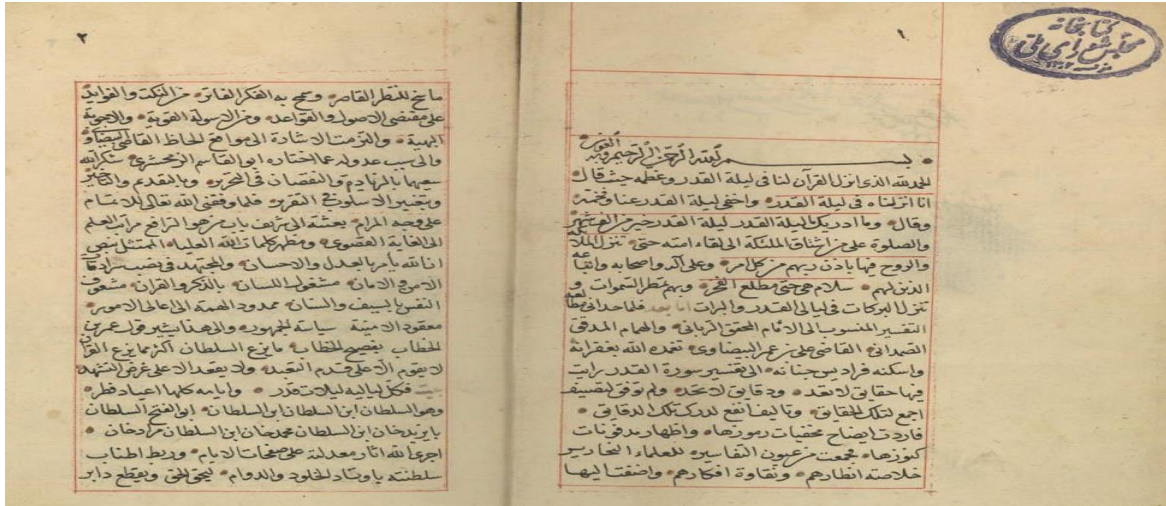 ١
كتابخانه
مجلس شورای ملی
بسم الله الرحمن الرحيم وبه العون
الحمد لله الذى انزل القرآن لنا فى ليلة القدر وعظمه حيث قال
انا انزلناه فى ليلة القدر واخفى ليلة القدر عنا وفخمه
وقال وما ادريك ما ليلة القدر ليلة القدر خير من الف شهر
والصلوة على من اشتاق الملئكة الى لقاء امته حتى تنزل الملائكة
والروح فيها باذن ربهم من كل امر وعلى آله واصحابه واتباعه
الذين لهم سلام هى حتى مطلع الفجر وبهم تمطر السموات و
تنزل البركات فى ليالى القدر والبرات اما بعد فلما حدانى مطالعة
التفسير المنسوب الى الامام المحقق الربانى والهمام المدقق
الصمدانى القاضى على بن عمر البيضاوى تغمده الله بغفرانه
واسكنه فراديس جنانه الى تفسير سورة القدر رايت
فيها حقايق لا تعد ودقايق لا تحد ولم توفق لتصنيف
اجمع لتلك الحقايق وتاليف انفع لدرك تلك الدقايق
فاردت ايضاح مخفيات رموزها واظهار مدفونات
كنوزها فجمعت من عيون التفاسير للعلماء النحارير
خلاصه انظارهم ونقاوة افكارهم واضفت اليها
٢
ما سنح للنظر القاصر وسمح به الفكر الفاتر من النكت والفوايد
على مقتضى الاصول والقواعد ومن الاسولة القوية والاجوبة
البهية والتزمت الاشارة الى مواقع الحاظ القاضى البيضاوى
والى سبب عدوله عما اختاره ابو القاسم الزمخشرى شكر الله
سعيهما بالزيادة والنقصان فى التحرير وبالتقديم والتاخير
وتغيير الاسلوب فى التقرير فلما وفقنى الله تعالى للاتمام
على وجه المرام بعثته الى شريف باب من هو الرافع مراتب العلم
الى الغاية القصوى ومظهر كلمات الله العليا الممتثل بنص
ان الله يأمر بالعدل والاحسان والمجتهد فى نصب سرادقات
الامن والامان مشغول اللسان بالذكر والقران مشعوف
النفس بالسيف والسنان ممدود الهمة الى اعالى الامور
معقود الامنية سياسة الجمهور والى هذا يشير قول عمر بن
الخطاب بفصيح الخطاب ما يزع السلطان اكثر مما يزع القران
لا يقوم الا على قدم التعبد ولا يقعد الا على غرض التشهد
فكل لياليه ليلات قدر وايامه كلها اعياد فطر
وهو السلطان ابن السلطان ابن السلطان ابو الفتح السلطان
بايزيد خان ابن السلطان محمد خان ابن السلطان مراد خان
اجرى الله اثار معدلته على صفحات الايام وربط اطناب
سلطنته باوتاد الخلود والدوام ليحق الحق ويقطع دابر